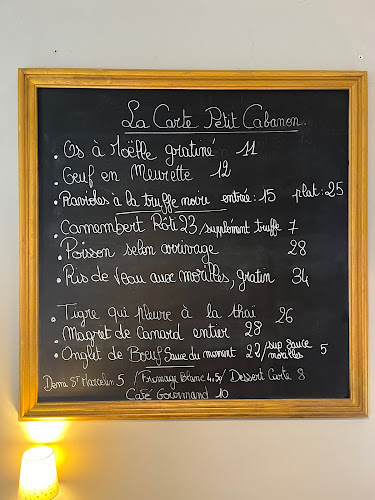 La Carte Petit Cabanon.
. Os à Moëlle gratiné 11
. Oeuf en Meurette 12
. Ravioles à la truffe noire entrée: 15 plat: 25
. Camembert Rôti 23 / suplément truffe 7
. Poisson selon arrivage 28
. Ris de Veau avec morilles, gratin 34
. Tigre qui pleure à la thaï 26
. Magret de Canard entier 28
. Onglet de Boeuf Sauce du moment 22 / sup sauce morilles 5
Demi St Marcelin 5 / Fromage Blanc 4,5 / Dessert Carte 8
Café Gourmand 10